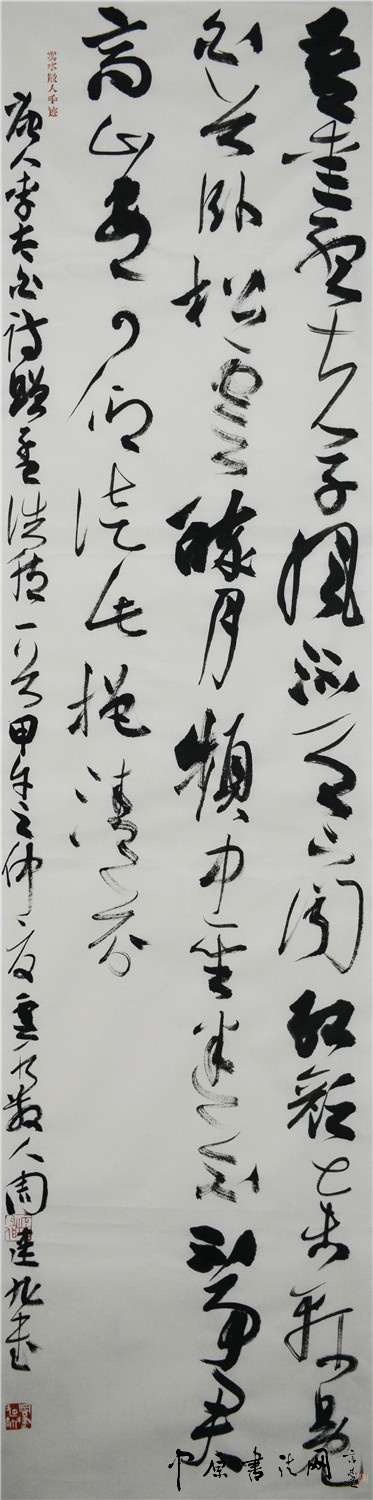 吾爱孟夫子風流天下闻红颜弃轩冕
白首卧松雲醉月頻中聖迷花不事君
高山安可仰徒此挹清芬
雲水散人手迹
唐人李太白诗赠孟浩然一首甲午之仲夏雲水散人周建书
中原書法网